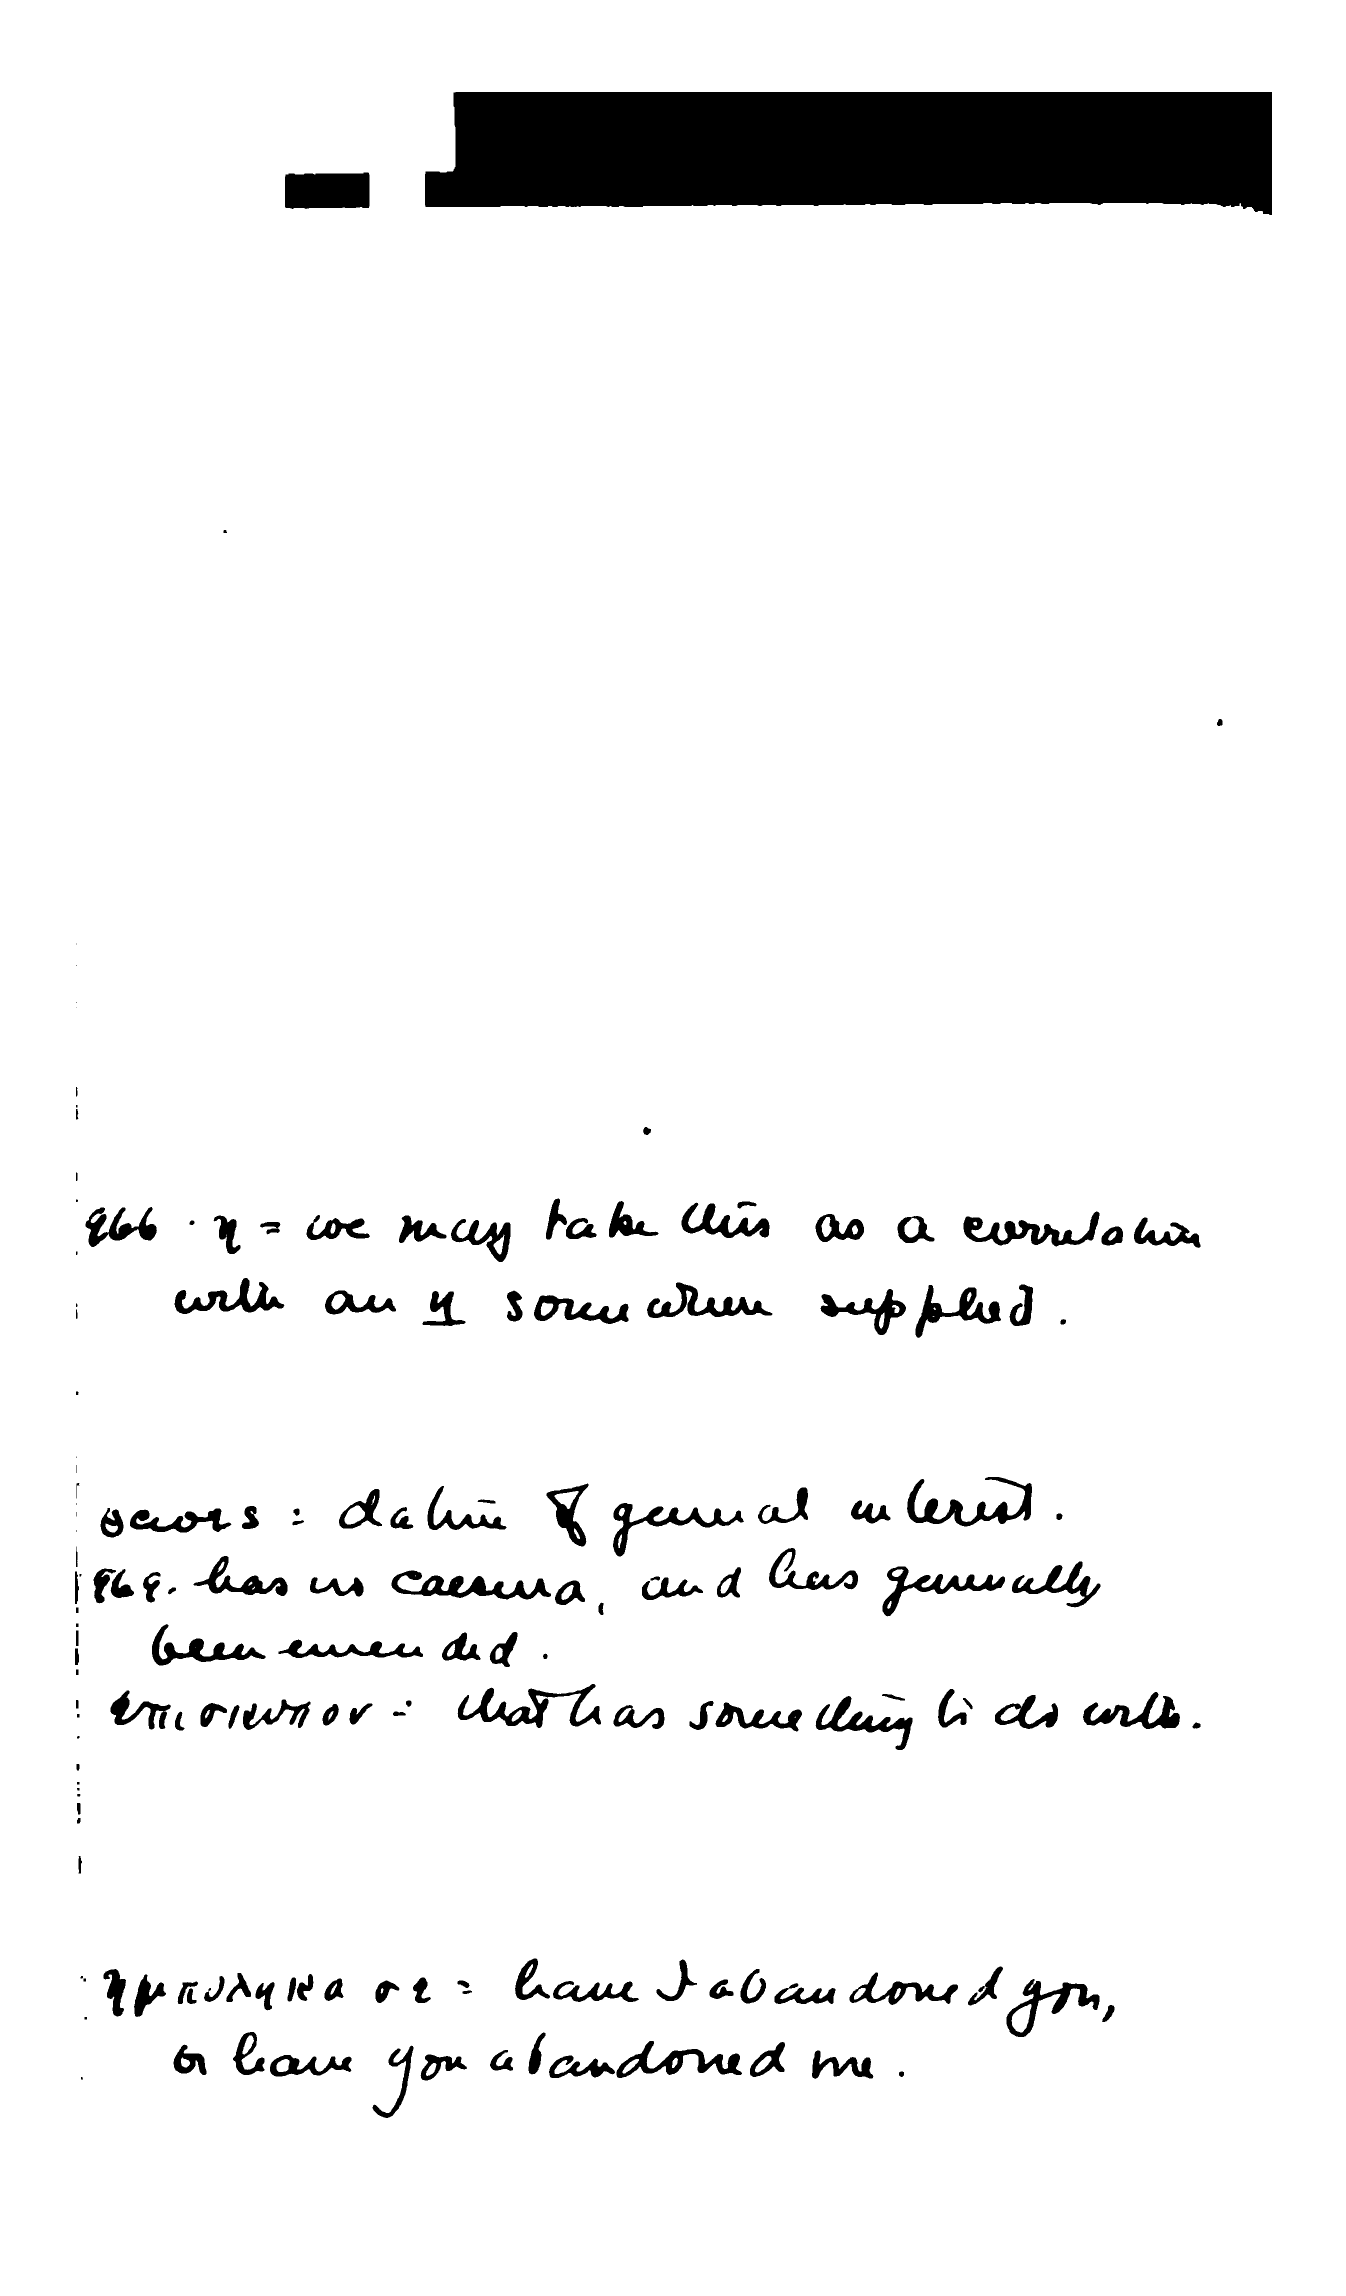 966 . η = we may take this as a correlation
with an η somewhere supplied .
θεοις : dative of general interest .
969. has no caesura, and has generally
been emended .
επισκοπον = that has something to do with .
ημποληκα σε = have I abandoned you,
or have you abandoned me .